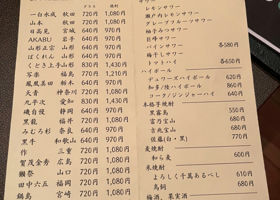 グラス 徳利
一白水成 秋田 720円 1,080円
山本 秋田 720円 1,080円
日高見 宮城 640円 980円
AKABU 岩手 640円 980円
山形正宗 山形 640円 980円
ばくれん 山形 640円 980円
くどき上手 山形 430円
写楽 福島 770円 1,210円
鳳凰美田 栃木 640円 980円
天青 神奈川 720円 1,080円
九平次 愛知 720円
磯自慢 静岡 640円 980円
黒龍 福井 720円 1,080円
みむろ杉 奈良 640円 980円
黒牛 和歌山 640円 980円
作 三重 720円 1,080円
賀茂金秀 広島 720円 1,080円
獺祭 山口 720円 1,080円
田中六五 福岡 720円 1,080円
鍋島
サワー
レモンサワー
瀬戸内レモンサワー
グレープフルーツサワー
柚子みつサワー
巨峰サワー
パインサワー 各580円
梅干しサワー
トマトハイ 各650円
ハイボール
デュワーズハイボール 620円
知多/陸ハイボール 860円
コーク/ジンジャーハイ 640円
本格芋焼酎
黒霧島 550円
富乃宝山
吉兆宝山 580円
佐藤(白・黒) 770円
麦焼酎
和ら麦 600円
米焼酎
よろしく千萬あるべし 610円
鳥飼 680円
梅酒、果実酒